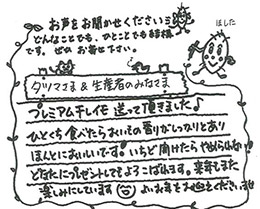 お声をお聞かせください
どんなことでも、ひとことでも結構
です。ぜひお寄せ下さい。
ほした
タツマさま & 生産者のみなさま
プレミアム干しイモ 送って頂きました♪
ひとくち食べたらおいもの香りがしっかりとあり
ほんとにおいしいです。いちど開けたらやめられない!
どなたにプレゼントしてもよろこばれます。来年もまた
楽しみにしています